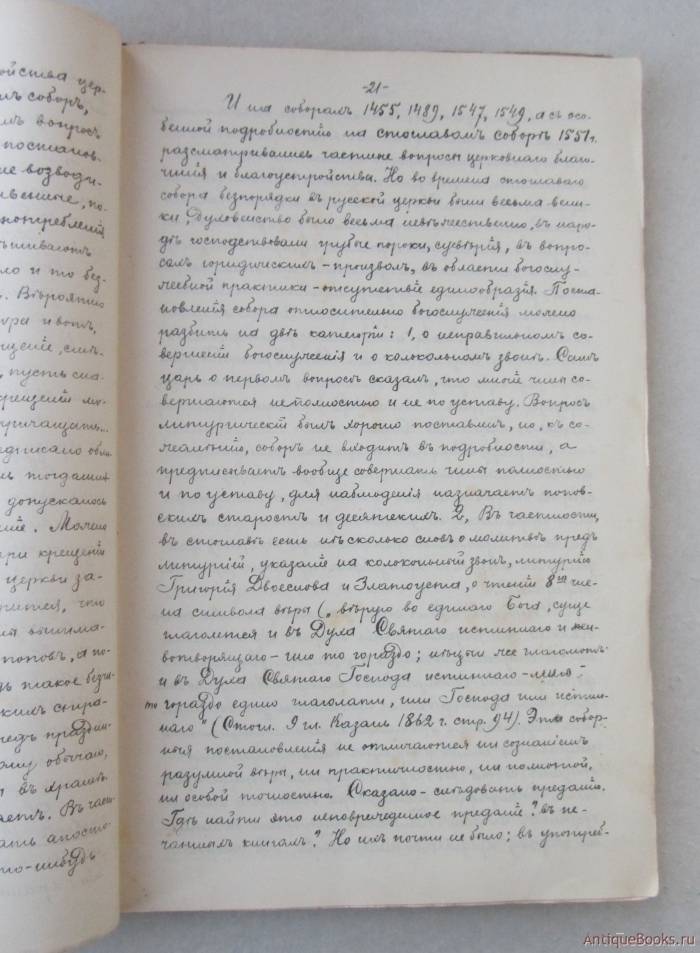 ойства цер-
ль соборъ,
мъ вопросъ
постанов-
не возводи-
твенные, по-
употребленiй
ло и то без-
. Вѣроятно
ора и вотъ,
щенiе, смѣ-
, пусть ска-
крещенiй мо-
причащать...
едписано обли-
ль тогдашнiя
допускалось
нiе. Можно
при крещенiи
церкви за-
рится, что
ля вынима-
поповъ, а по-
дь такое безчи-
скимъ стира-
редъ праздни-
ому обычаю,
и въ храмъ
аетъ. Въ част-
ать апосто-
то-нибудь
-21-
И на соборахъ 1455, 1489, 1547, 1549, а съ осо-
бенной подробностiю на стоглавомъ соборѣ 1551 г.
разсматривались частные вопросы церковнаго благо-
чинiя и благоустройства. Но во времена стоглаваго
собора безпорядки въ русской церкви были весьма вели-
ки. Духовенство было весьма невѣжественно, въ наро-
дѣ господствовали грубые пороки, суевѣрiя, въ вопро-
сахъ юридическихъ - произволъ, въ области богослу-
жебной практики - отсутствiе единообразiя. Поста-
новленiя собора относительно богослуженiя можно
разбить на двѣ категорiи: 1, о неправильномъ со-
вершенiи богослуженiя и о колокольномъ звонѣ. Самъ
царь о первомъ вопросѣ сказалъ, что многiе чины со-
вершаются не полностью и не по уставу. Вопросъ
литургическiй былъ хорошо поставленъ, но, къ со-
жаленiю, соборъ не входитъ въ подробности, а
предписываетъ вообще совершать чины полностью
и по уставу, для наблюденiя назначаетъ попов-
скихъ старостъ и десятскихъ. 2, Въ частности,
въ стоглавѣ есть нѣсколько словъ о молитвѣ предъ
литургiей, указанiе на колокольный звонъ, литургiю
Григорiя Двоеслова и Златоуста, о чтенiи 8го чле-
на символа вѣры („вѣрую во единаго Бога, суще
глаголется и въ Духа Святаго истиннаго и жи-
вотворящаго - ино то гораздо; нѣцыи же глаголютъ
и въ Духа Святаго Господа истиннаго -
то гораздо едино глаголати, или Господа или истин-
наго" (Стогл. 9 гл. Казань 1862 г. стр. 94). Эти собор-
ныя постановленiя не отличаются ни сознанiемъ
разумной вѣры, ни практичностью, ни полнотой,
ни особой точностью. Сказано - слѣдовать преданiю.
Гдѣ найти это неповрежденное преданiе? въ пе-
чатныхъ книгахъ? Но ихъ почти не было; въ употреб-
AntiqueBooks.ru